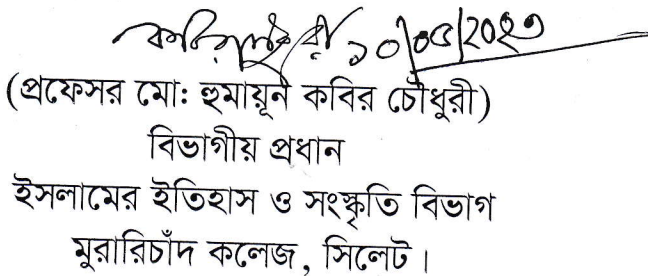 ১০/০৫/2023
(প্রফেসর মো: হুমায়ূন কবির চৌধুরী)
বিভাগীয় প্রধান
ইসলামের ইতিহাস ও সংস্কৃতি বিভাগ
মুরারিচাঁদ কলেজ, সিলেট।